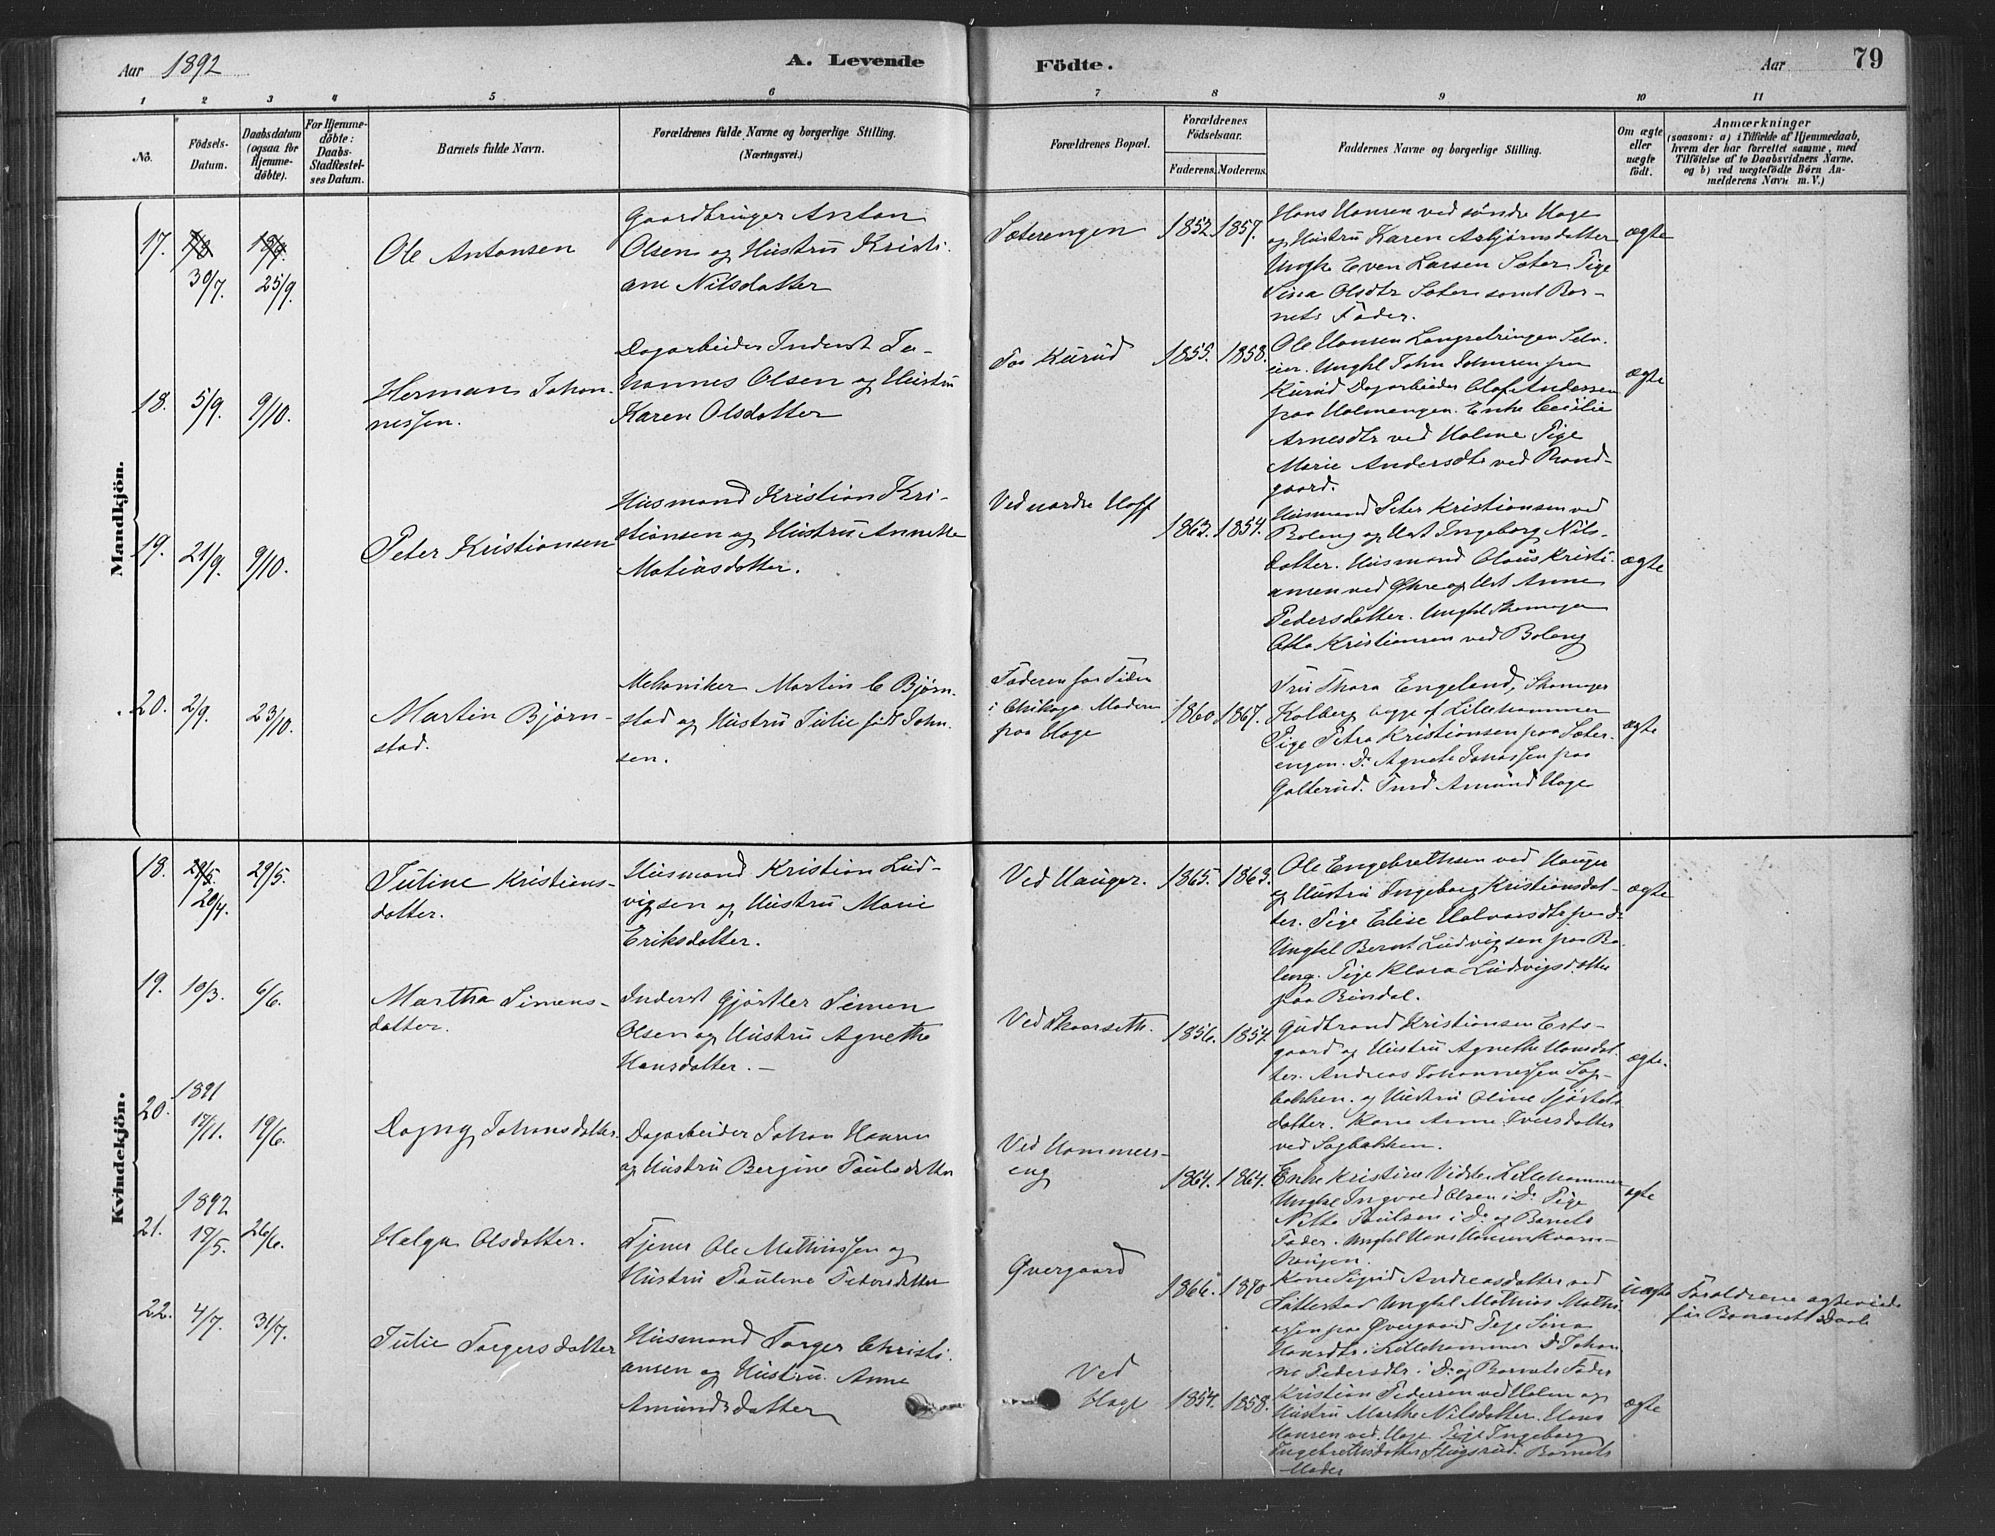 Aar 1892
A. Levende
Födte.
Aar
79
1 2 3 4 5 6 7 8 9 10 11
No.
Födsels-
Datum.
Daabsdatum
(ogsaa for
Hjemme-
döbte).
For Hjemme-
döbte:
Daabs-
Stadfæstel-
ses Datum.
Barnets fulde Navn.
Forældrenes fulde Navne og borgerlige Stilling.
(Næringsvei.)
Forældrenes Bopæl.
Forældrenes
Födselsaar.
Faderens. Moderens.
Faddernes Navne og borgerlige Stilling.
Om ægte
eller
uægte
födt.
Anmærkninger
(saasom: a) i Tilfælde af Hjemmedaab,
hvem der har forrettet samme, med
Tilföielse af to Daabsvidners Navne.
og b) ved uægtefödte Börn An-
melderens Navn m. V.)
Mandkjön.
17.
30/7.
25/9.
Ole Antonsen
Gaardbruger Anton
Olsen og Hustru Kristi-
ane Nilsdatter
Sæterengen
1852. 1857.
Hans Hansen ved søndre Hage
og Hustru Karen Asbjørnsdatter
Ungk Even Larsen Sæter Pige
Sina Olsdtr Sæter samt Bar-
nets Fader.
ægte
18.
5/9.
9/10.
Herman Johan-
nessen.
Dagarbeider Inderst Jo-
hannes Olsen og Hustru
Karen Olsdatter
Paa Kurud
1855. 1858.
Ole Hansen Langsetringen
Ungkl John Johnsen paa
Kurud Dagarbeider Olof Andersen
paa Holmengen. Enke Cecilie
Arnesdtr ved Holme Pige
Marie Andersdtr ved Rand-
gaard.
ægte
19.
21/9.
9/10.
Peter Kristiansen
Husmand Kristian Kri-
stiansen og Hustru Annette
Matiasdatter.
Ved nordre Hoff
1863. 1854.
Husmand Peter Kristiansen ved
Boleng og Hust Ingeborg Nils-
datter. Husmand Olaus Kristi-
ansen ved Øhre og Hust Anne
Pedersdatter. Ungkl Skomager
Otto Kristiansen ved Boleng
ægte
20.
2/9.
23/10.
Martin Bjørn-
stad.
Mekaniker Martin C Bjørn-
stad og Hustru Julie født John-
sen.
Faderen for Tiden
i Chikago. Moderen
paa Hage
1860. 1867.
Fru Thora Engeland, Skomager
Kolberg begge af Lillehammer
Pige Petra Kristiansen paa Sæter-
engen. Do Agnete Johassen paa
Galterud. Amund Hage
ægte
Kvindekjön.
18.
20/4.
29/5.
Juline Kristians-
datter.
Husmand Kristian Lud-
vigsen og Hustru Marie
Eriksdatter.
Ved Hauger.
1865. 1863.
Ole Engebrethsen ved Hauger
og Hustru Ingeborg Kristiansdat-
ter. Pige Elise Halvorsdtr paa do
Ungkl Bernt Ludvigsen paa Bo-
leng. Pige Klara Ludvigsdatter
paa Bindal.
ægte
19.
10/3.
6/6.
Martha Simens-
datter.
Inderst Gjørtler Simen
Olsen og Hustru Agnethe
Hansdatter. —
Ved Skaarseth.
1856. 1854.
Gudbrand Kristiansen Ests-
gaard og Hustru Agnethe Hansdat-
ter. Andreas Johannessen Sag-
bakken. og Hustru Oline
datter. Kone Anne Iversdatter
ved Sagbakken.
ægte.
20.
1891
17/11.
19/6.
Dagny Johansdatter.
Dagarbeider Johan Hansen
og Hustru Bergine Paulsdatter
Ved Hammers-
eng
1864. 1864.
Enke Kristine Lillehammer
Ungkl Ingvald Olsen i Do. Pige
Netta Paulsen i Do. og Barnets
Fader. Ungkl Hans Hansen Kvarn-
haugen.
ægte
21.
1892
19/5.
26/6.
Helga Olsdatter.
Tjener Ole Mathiassen og
Hustru Pauline Petersdatter
Øvergaard
1866. 1870
Kone Sigrid Andreasdatter ved
Ungkl Mathias Mathi-
assen paa Øvergaard Pige Sina
Hansdtr i Lillehammer Do Johan-
ne Pedersdtr i Do og Barnets Fader
uægte
Forældrene ægteviede
før Barnets Daab
22.
4/7.
31/7.
Julie Torgersdatter
Husmand Torger Christi-
ansen og Hustru Anne
Amundsdatter
Ved
Hage
1854. 1858.
Kristian Pedersen ved Holm og
Hustru Marthe Nilsdatter. Hans
Hansen ved Hage Pige Ingeborg
Ingebrethsdatter Barnets
Moder
ægte